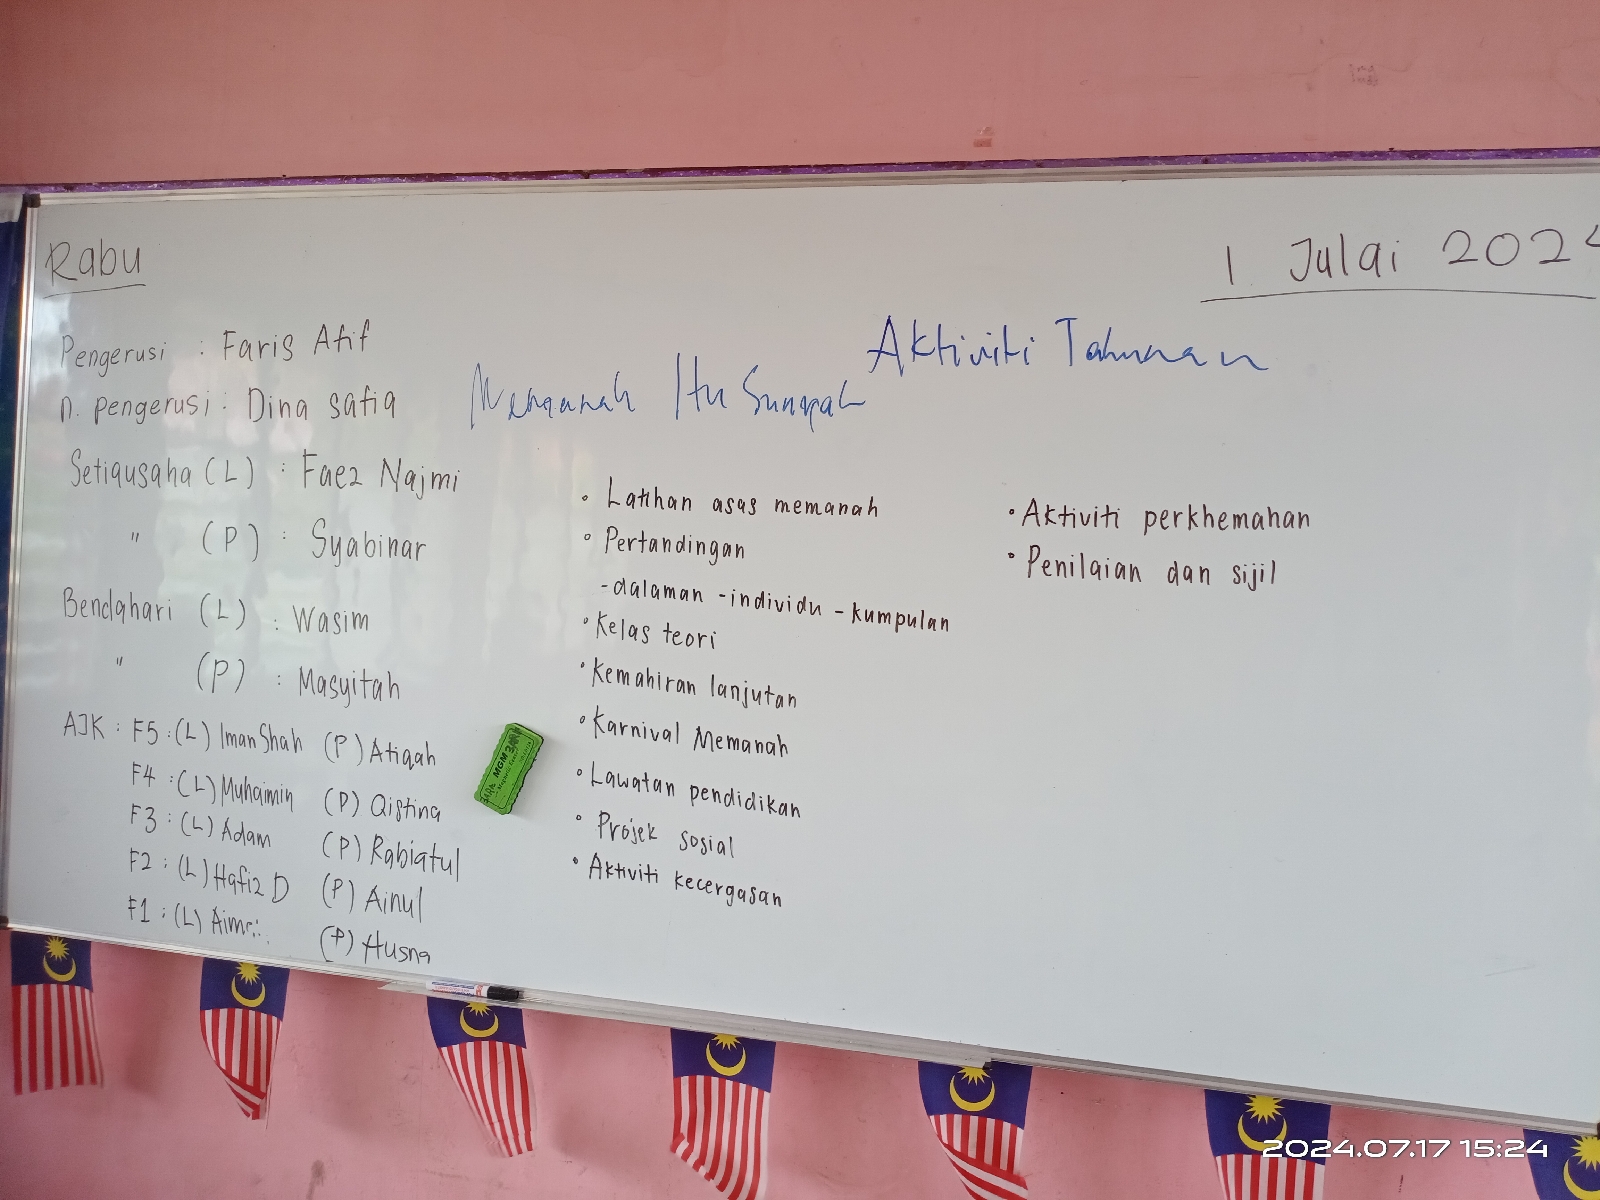 Rabu
1 Julai 2024
Pengerusi : Faris Afif
n. pengerusi : Dina safia
Setiausaha (L) : Faez Najmi
" (P) : Syabinar
Bendahari (L) : Wasim
" (P) : Masyitah
AJK : F5 : (L) Iman Shah (P) Atiqah
F4 : (L) Muhaimin (P) Qistina
F3 : (L) Adam (P) Rabiatul
F2 : (L) Hafiz D (P) Ainul
F1 : (L) (P) Husna
Aktiviti Tahunan
Itu
• Latihan asas memanah
• Pertandingan
- dalaman - individu - kumpulan
• Kelas teori
• Kemahiran lanjutan
• Karnival Memanah
• Lawatan pendidikan
• Projek sosial
• Aktiviti kecergasan
• Aktiviti perkhemahan
• Penilaian dan sijil
MGM
2024.07.17 15:24